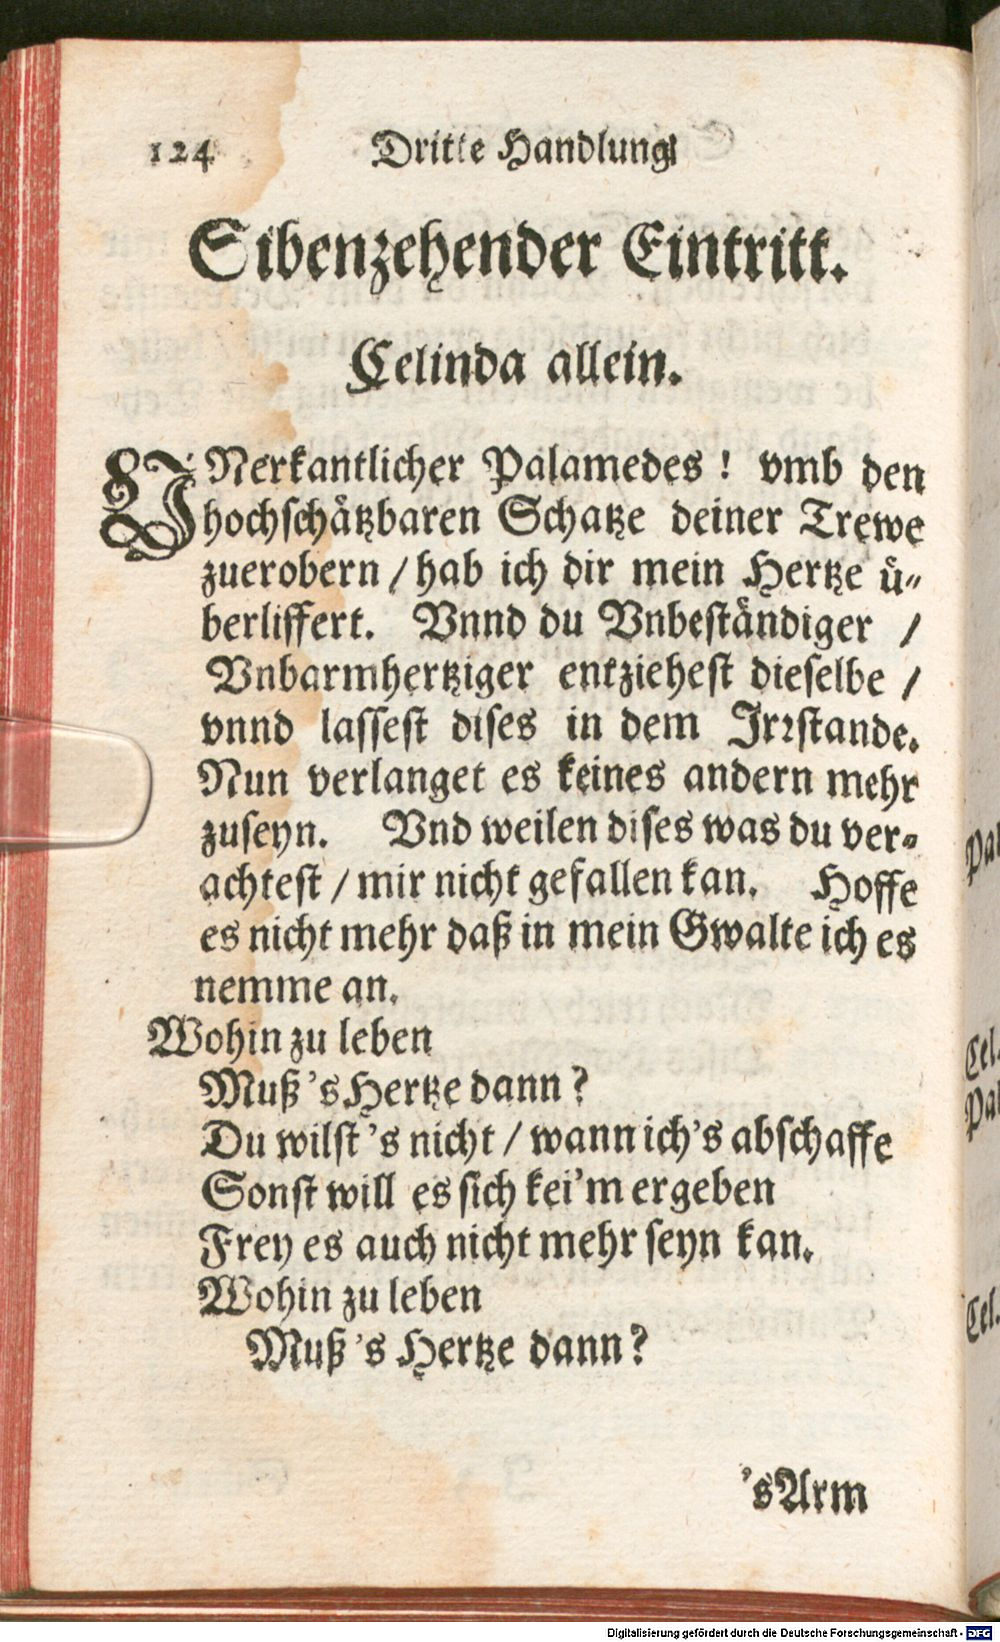 124 Dritte Handlung
Sibenzehender Eintritt.
Celinda allein.
VNerkantlicher Palamedes ! vmb den
hochſchåtzbaren Schatze deiner Trewe
zuerobern / hab ich dir mein Hertze ů-
berliffert. Vnnd du Vnbeſtåndiger /
Vnbarmhertziger entzieheſt dieſelbe /
vnnd laſſeſt diſes in dem Irꝛſtande.
Nun verlanget es keines andern mehr
zuſeyn. Vnd weilen diſes was du ver-
achteſt / mir nicht gefallen kan. Hoffe
es nicht mehr daß in mein Gwalte ich es
nemme an.
Wohin zu leben
Muß 's Hertze dann?
Du wilſt 's nicht / wann ich's abſchaffe
Sonſt will es ſich kei'm ergeben
Frey es auch nicht mehr ſeyn kan.
Wohin zu leben
Muß 's Hertze dann?
's Arm
Pal
Cel.
Pal
Cel.
Digitalisierung gefördert durch die Deutsche Forschungsgemeinschaft - DFG